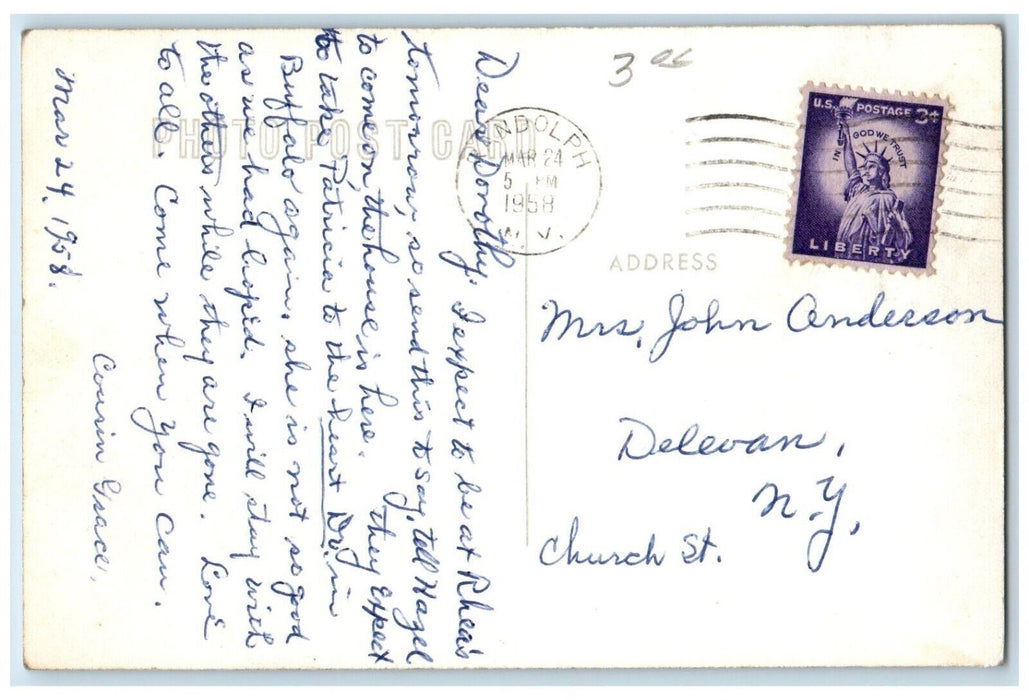 3 00
PHOTO POST CARD
RANDOLPH
MAR 24
5 PM
1958
N. Y.
U.S. POSTAGE 3¢
IN GOD WE TRUST
LIBERTY
ADDRESS
Mrs, John Anderson
Delevan,
N.Y.
Church St.
Dear Dorothy, I expect to be at Rhea's
tomorrow, so send this to say, tell Hazel
to come on, the house is here. They expect
to take Patricia to the heart Dr. in
Buffalo again, she is not so good
as we had hoped. I will stay with
the others while they are gone. Love
to all. Come when you can.
Cousin Grace,
Mar 24, 1958.